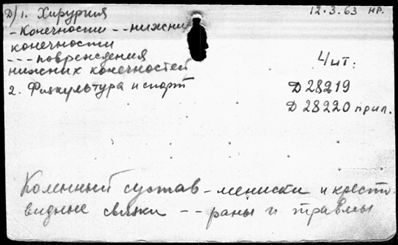 Д/1. Хирургия
12.3.63 нр.
- Конечности -- нижни
конечности
--- повреждения
нижних конечностей
2. Физкультура и спорт
4 шт:
Д 28219
Д 28220 прил.
Коленный сустав - мениски и кресто
видные связки -- раны и травмы